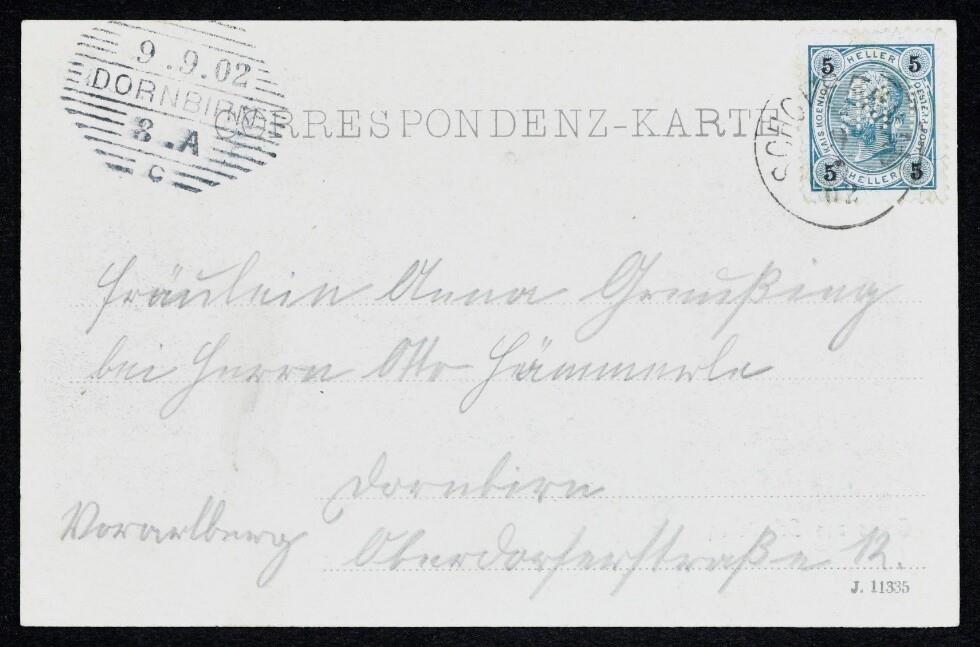 9.9.02
DORNBIRN
8.A
C
CORRESPONDENZ-KARTE
5 HELLER 5
5 HELLER 5
02
Fräulein Anna Greußing
bei Herrn Otto Hämmerle
Dornbirn
Vorarlberg Oberdorferstraße 12.
J. 11335